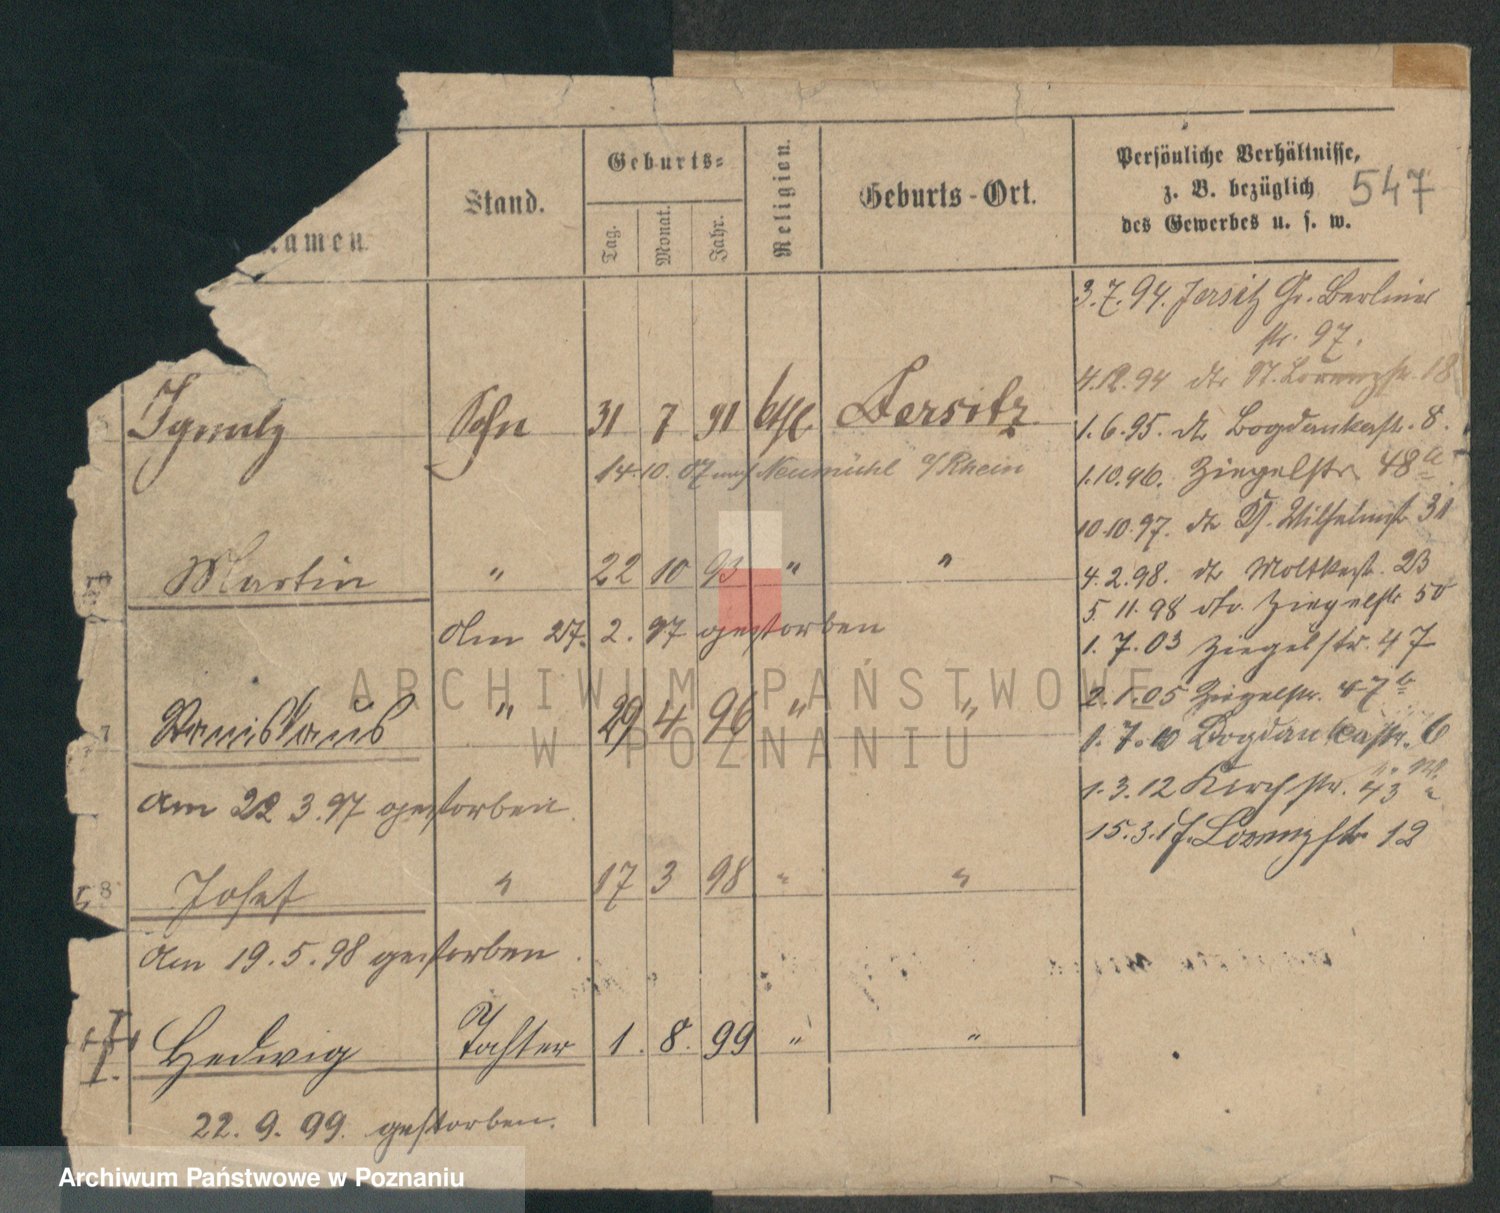 Namen.
Stand.
Geburts-
Tag.
Monat.
Jahr.
Religion.
Geburts-Ort.
Persönliche Verhältnisse,
z. B. bezüglich
des Gewerbes u. s. w.
547
3.7.94. Jersitz Gr. Berliner
str. 97.
4.12.94 dto St. Lorenzstr. 18
Ignatz Sohn 31 7 91 kth Jersitz
1.6.95. dto Bogdankastr. 8.
14.10.07 nach Neumühl a/Rhein
1.10.96. Ziegelstr. 48a
10.10.97. dto Kl. Wilhelmstr 31
Martin " 22 10 93 " "
4.2.98. dto Moltkestr. 23
5.11.98 dto. Ziegelstr 50
Am 27. 2. 97 gestorben
1.7.03 Ziegelstr. 47
2.1.05 Ziegelstr. 47b
7 Stanislaus " 29 4 96 " "
1.7.10 Bogdankastr. 6
am 22 3.97 gestorben.
1.3.12 Kirchstr. 43
15.3.17. Lorenzstr 12
8 Josef " 17 3 98 " "
Am 19.5.98 gestorben.
Hedwig Tochter 1. 8. 99 " "
22. 9. 99. gestorben.
ARCHIWUM PAŃSTWOWE
W POZNANIU
Archiwum Państwowe w Poznaniu